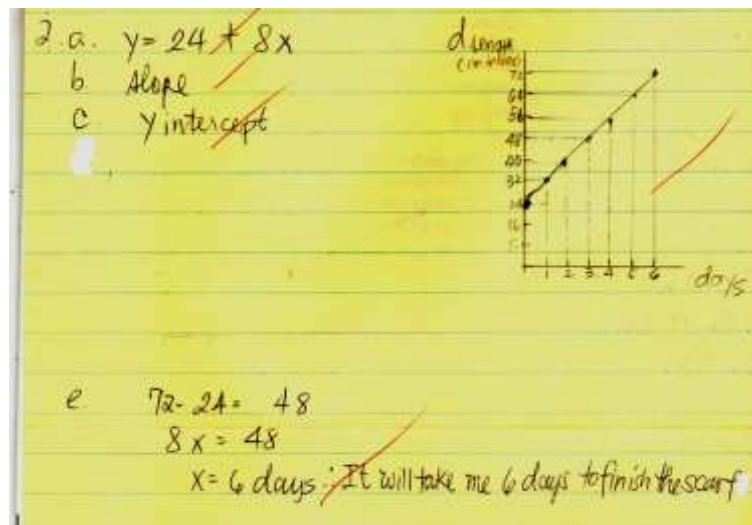 2 a. y = 24 + 8x
b slope
c y intercept
d Length
72
64
56
48
40
32
24
16
1 2 3 4 5 6
days
e 72 - 24 = 48
8x = 48
x = 6 days ∴ It will take me 6 days to finish the scarf